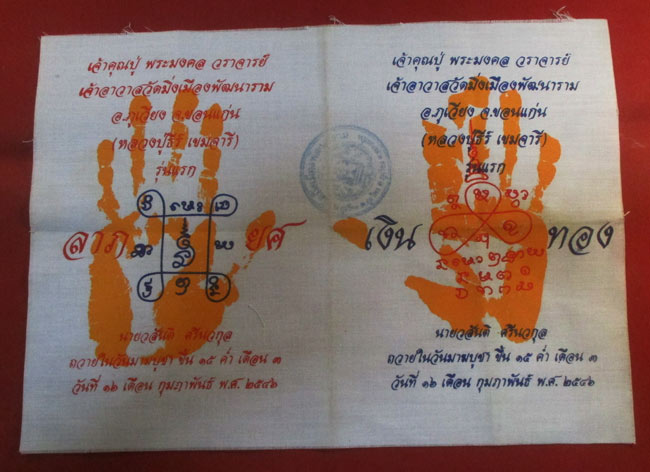 เจ้าคุณปู่ พระมงคล วราจารย์
เจ้าอาวาสวัดมิ่งเมืองพัฒนาราม
อ.ภูเวียง จ.ขอนแก่น
(หลวงปู่ธีร์ เขมจารี)
รุ่นแรก
ลาภ ยศ
นายวสันติ ศรีนวกุล
ถวายในวันมาฆบูชา ขึ้น ๑๕ ค่ำ เดือน ๓
วันที่ ๑๖ เดือน กุมภาพันธ์ พ.ศ. ๒๕๔๖
เจ้าคุณปู่ พระมงคล วราจารย์
เจ้าอาวาสวัดมิ่งเมืองพัฒนาราม
อ.ภูเวียง จ.ขอนแก่น
(หลวงปู่ธีร์ เขมจารี)
รุ่นแรก
เงิน ทอง
นายวสันติ ศรีนวกุล
ถวายในวันมาฆบูชา ขึ้น ๑๕ ค่ำ เดือน ๓
วันที่ ๑๖ เดือน กุมภาพันธ์ พ.ศ. ๒๕๔๖